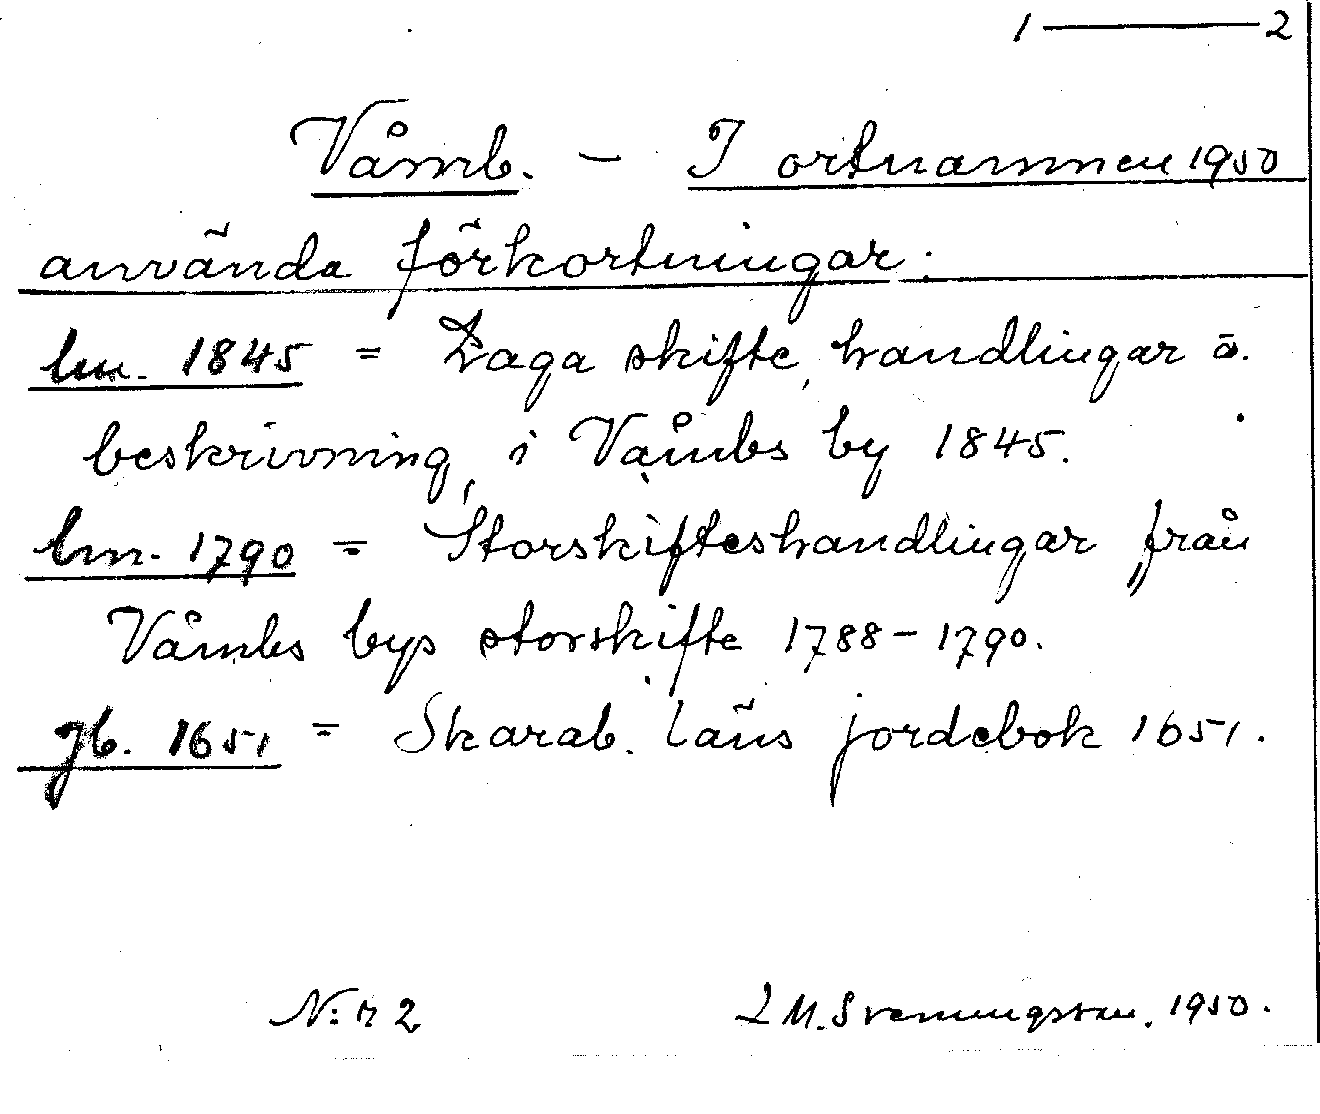 1 — 2
Våmb. - I ortnamnen 1950
använda förkortningar:
lm. 1845 = Laga skifte, handlingar o.
beskrivning, i Våmbs by 1845.
lm. 1790 = Storskifteshandlingar från
Våmbs bys storskifte 1788-1790.
jb. 1651 = Skarab. läns jordebok 1651.
N:r 2 L M. Svenungsson. 1950.